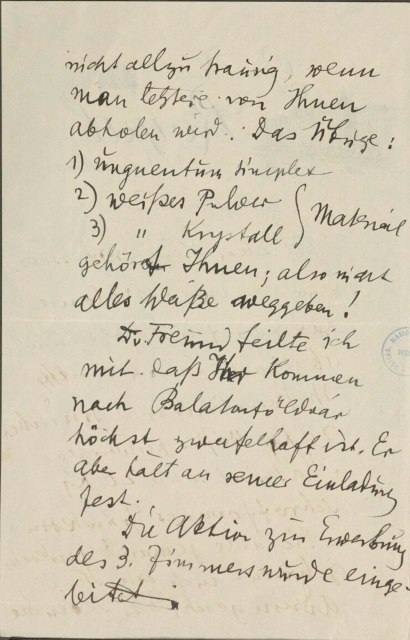 nicht allzu traurig, wenn
man letztere von Ihnen
abholen wird. Das Übrige:
1) unguentum simplex
2) weißes Pulver
3) " Krystall } Material
gehört Ihnen; also nicht
alles Weiße weggeben!
Dr. Freund teilte ich
mit daß Ihr Kommen
nach Balatonföldvár
höchst zweifelhaft ist. Er
aber hält an seiner Einladung
fest.
Die Aktion zur Erwerbung
des 3. Zimmers wurde einge-
leitet.